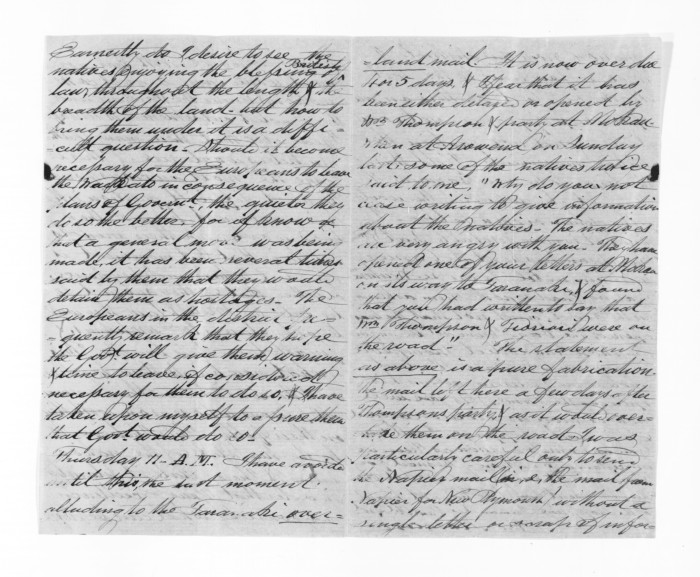 Earnestly do I desire to see the
natives enjoying the blessing of British
law, throughout the length & the
breadth of the land but how to
bring them under it is a diffi-
cult question - Should it become
necessary for the Europeans to leave
the Waikato in consequence of the
plans of Govmt. the quieter they
do so the better for if know &
that a general move was being
made, it has been several times
said by them that they would
detain them as hostages - The
Europeans in the district fre-
quently remark that they hope
the Govt. will give them warning
& time to leave if considered
necessary for them to do so, & I have
taken upon myself to assure them
that Govt. would do so -
Thursday 11 - A.M. I have avoided
until this, the last moment
alluding to the Taranaki over-
-land mail. It is now over due
4 or 5 days, & I fear that it has
been either delayed or opened by
Wm Thompson & party at
When at on Sunday
last some of the natives
said to me, "Why do you not
cease writing to give information
about the Maories - The natives
are very angry with you - They have
opened one of your letters at
on its way to Taranaki, & found
that you had written to say that
Wm Thompson & were on
the road." The statement
as above is a pure fabrication
the mail left here a few days after
Thompsons party, & as it would over-
take them on the road I was
particularly careful not to send
the Napier mail (i.e. the mail from
Napier for New Plymouth) without a
single letter or scrap of infor-